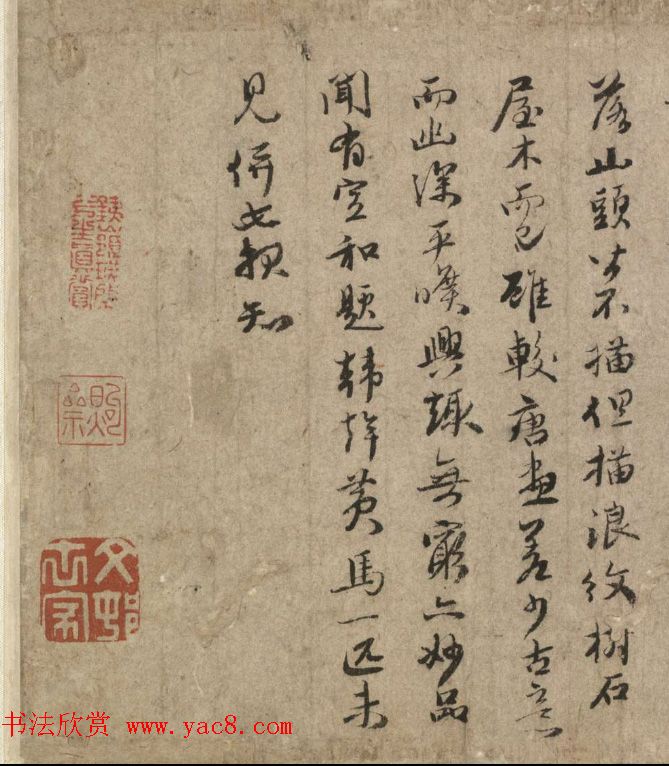 落山頭皆不描但描浪紋樹石
屋木而已雖較唐畫差少古意
而幽深平興趣無窮亦妙品
聞有宣和題韓幹黃馬一匹未
見併此報知
书法欣赏 www.yac8.com